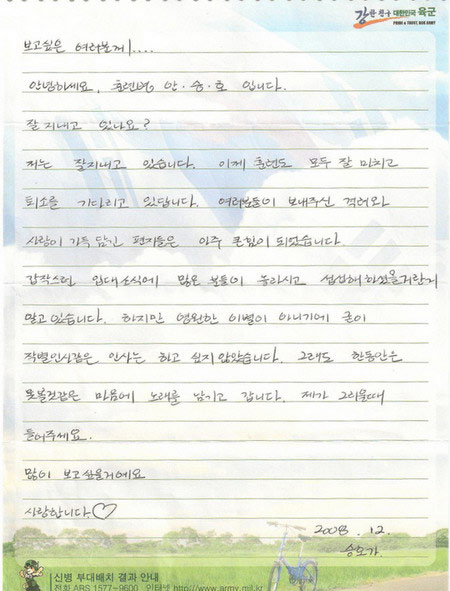 강한 친구 대한민국 육군
PRIDE & TRUST, ROK ARMY
보고싶은 여러분께....
안녕하세요, 훈련병 안·승·호 입니다.
잘 지내고 있나요?
저는 잘지내고 있습니다. 이제 훈련도 모두 잘 마치고
퇴소를 기다리고 있답니다. 여러분들이 보내주신 격려와
사랑이 가득 담긴 편지들은 아주 큰힘이 되었습니다.
갑작스런 입대소식에 많은 분들이 놀라시고 섭섭해하셨을거란거
알고있습니다. 하지만 영원한 이별이 아니기에 굳이
작별인사같은 인사는 하고 싶지않았습니다. 그래도 한동안은
못볼것같은 마음에 노래를 남기고 갑니다. 제가 그리울때
들어주세요.
많이 보고싶을거에요
사랑합니다♡
2008. 12.
승호가.
신병 부대배치 결과 안내
전화 ARS 1577-9600 인터넷 http://www.army.mil.kr